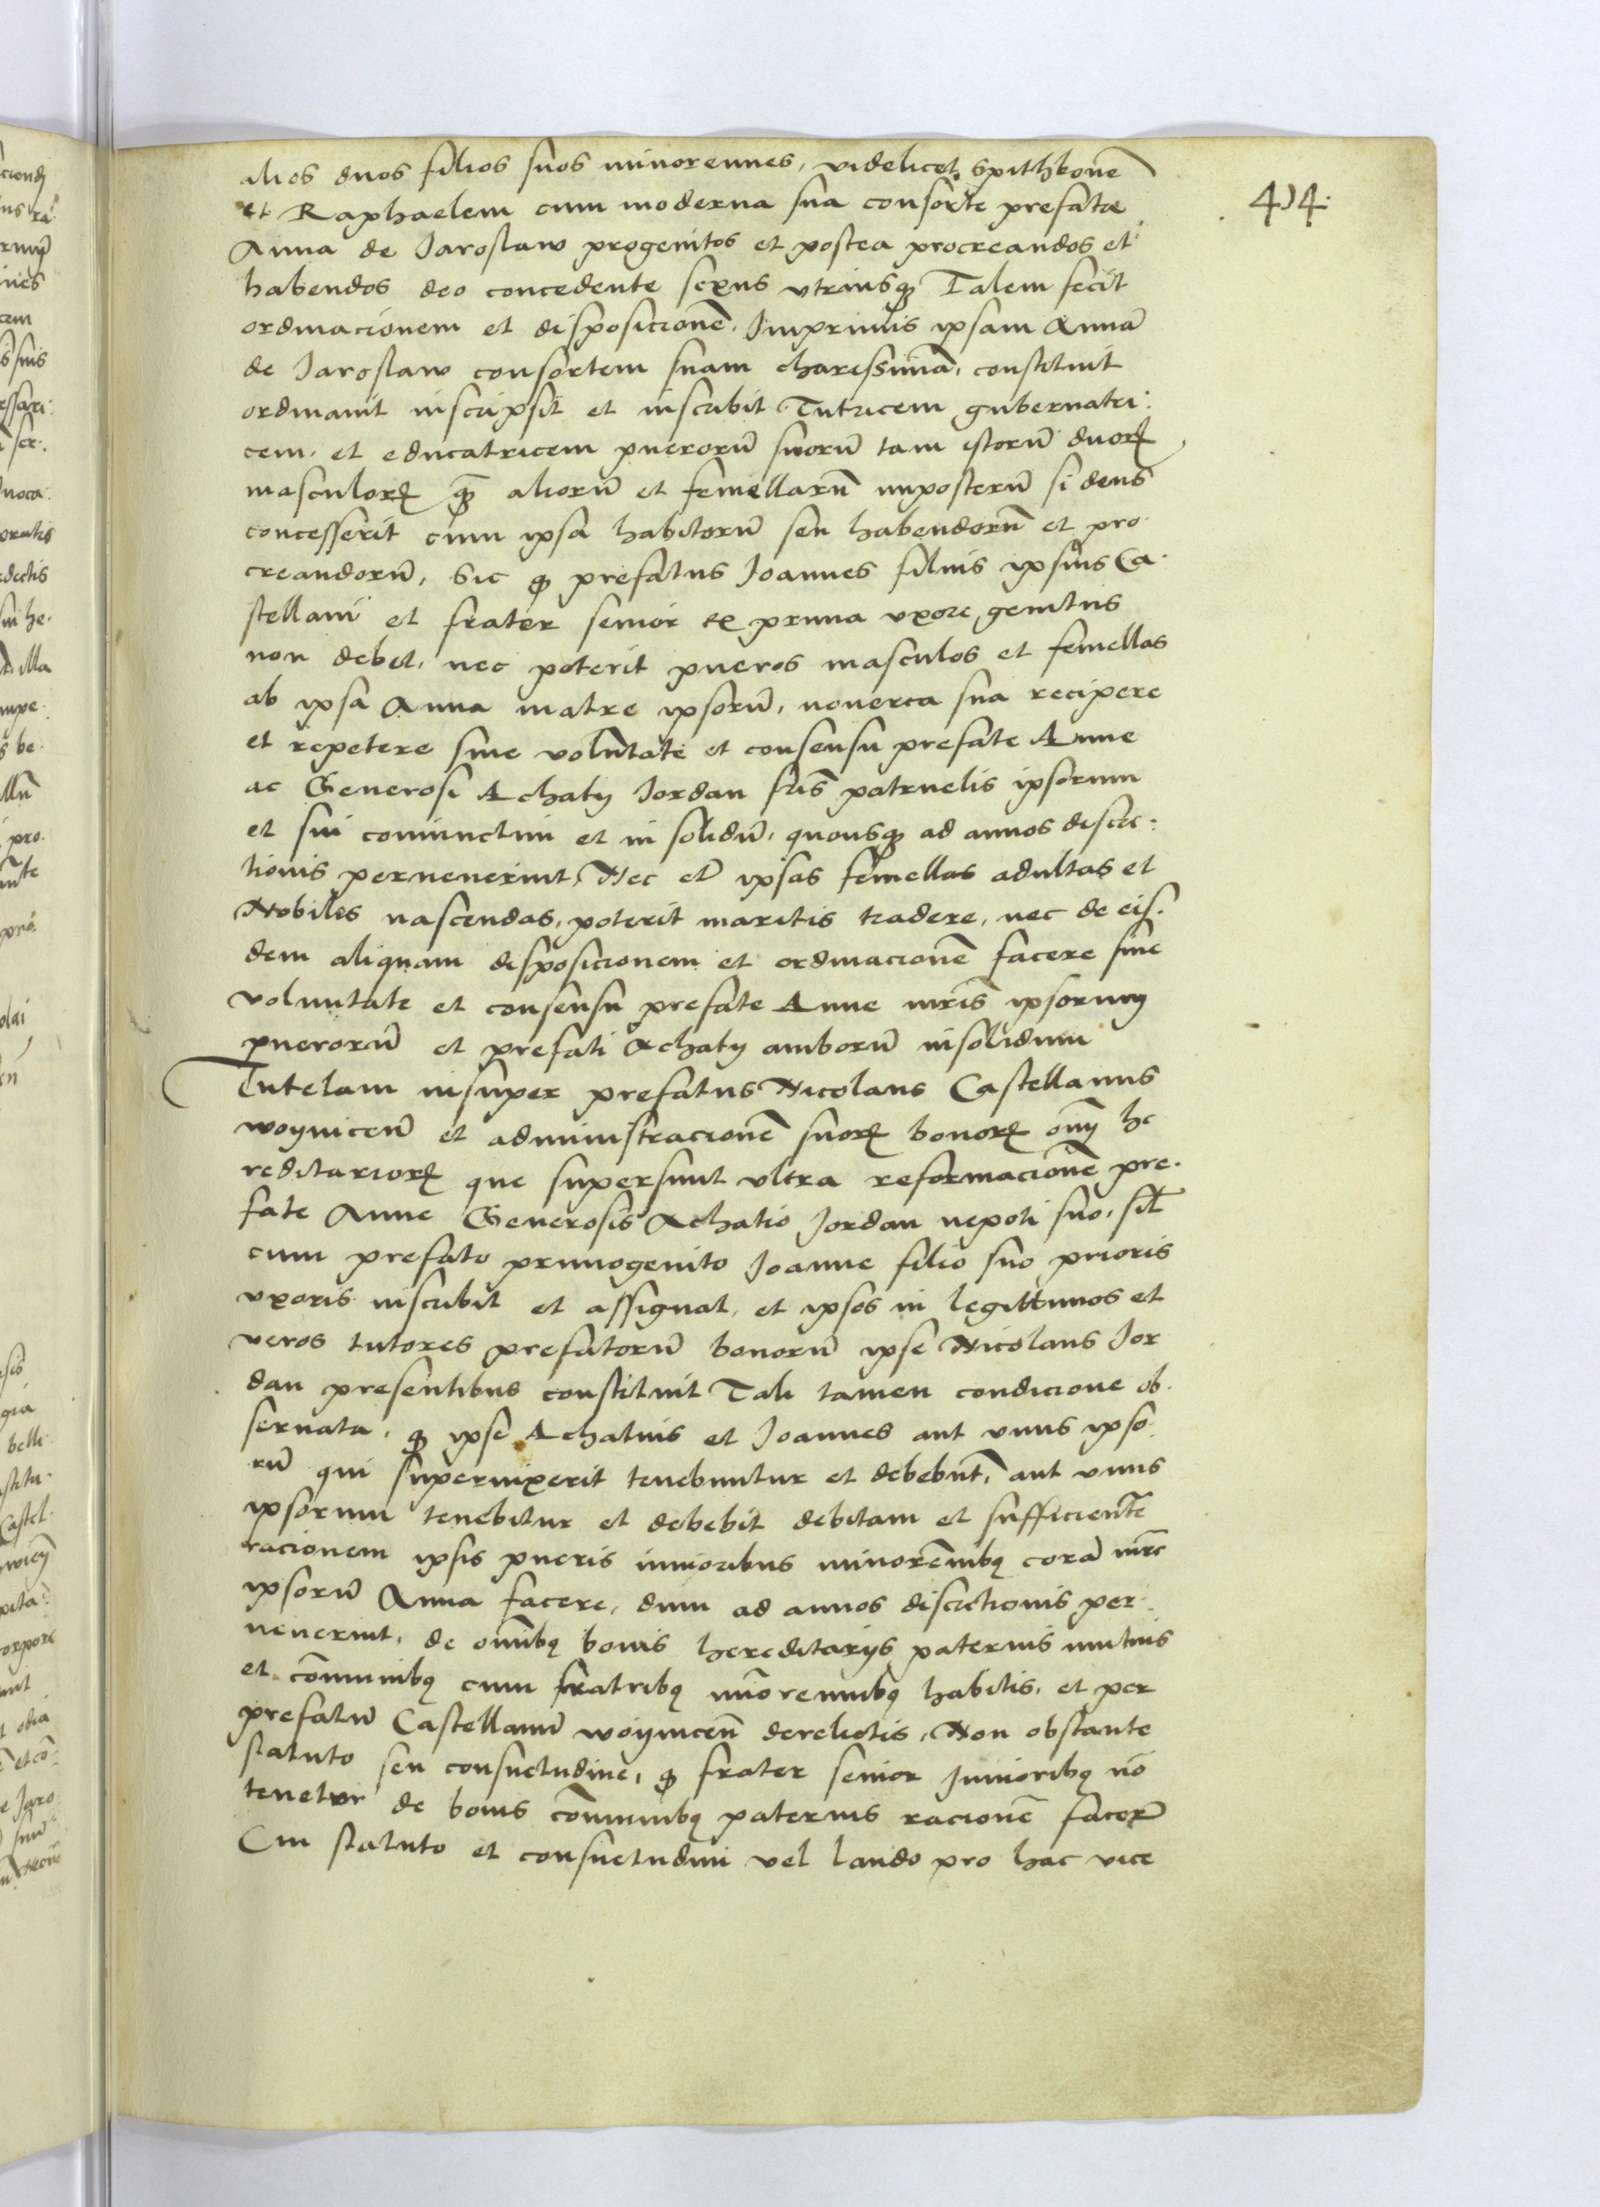 alios duos filios suos minorennes, videlicet Spithkonē
et Raphaelem cum moderna sua consorte prefata
414.
Anna de Jaroslaw progenitos et postea procreandos et
habendos deo concedente sexus utriusq3 Talem fecit
ordinacionem et disposicionē. Imprimis ipsam Annā
de Jaroslaw consortem suam charissimā, constituit
ordinavit inscripsit et inscribit Tutricem gubernatri:
cem, et educatricem puerorū suorū tam istorū duorꝝ
masculorꝝ qꝫ aliorū et femellarū imposterū si deus
concesserit cum ipsa habitorū seu habendorū et pro
creandorū, Sic ꝙ prefatus Joannes filius ipsius Ca.
stellani et frater senior ex prima uxore genitus
non debet, nec poterit pueros masculos et femellas
ab ipsa Anna matre ipsorū, noverca sua recipere
et repetere sine voluntate et consensu prefate Anne
ac Generosi Achatÿ Jordan fris̄ patruelis ipsorum
et sui coniunctim et in solidū, quousq3 ad annos discre:
tionis pervenerint, Nec etī ipsas femellas adultas et
Nobiles nascendas, poterit maritis tradere, nec de eis.
dem aliquam disposicionem et ordinacionē facere sine
voluntate et consensu prefate Anne mr̄is ipsorum
puerorū et prefati Achatÿ amborū insolidum
Tutelam insuper prefatus Nicolaus Castellanus
woynicen̄ et administracionē suorꝝ bonorꝝ om̄ he
reditariorꝝ que supersunt ultra reformacionē pre.
fate Anne Generosis Achatio Jordan nepoti suo, sil̄
cum prefato primogenito Joanne filio suo prioris
uxoris inscribit et assignat, et ipsos in legittimos et
veros tutores prefatorū bonorū ipse Nicolaus Jor
dan presentibus constituit Tali tamen condicione ob.
servata, ꝙ ipse Achatius et Joannes aut unus ipso.
rū qui supervixerit tenebuntur et debebūt, aut unus
ipsorum tenebitur et debebit debitam et sufficientē
racionem ipsis pueris iunioribus minorēnibꝫ corā mr̄e
ipsorū Anna facere, dum ad annos discretionis per.
venerint, de om̄ibꝫ bonis hereditarÿs paternis mutuis
et cōmunibꝫ cum fratribꝫ miōrennibꝫ habitis, et per
prefatū Castellanū woynicen̄ derelictis, Non obstante
statuto seu consuetudine, ꝙ frater senior Junioribꝫ nō
tenetur de bonis cōmunibꝫ paternis racionē facere
Cui statuto et consuetudini vel laudo pro hac vice